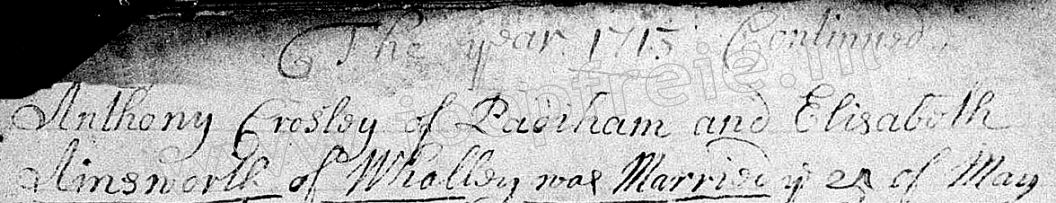 The year 1715 Continued.
Anthony Crosley of Padiham and Elisabeth
Ainsworth of Whalley was Married ye of May